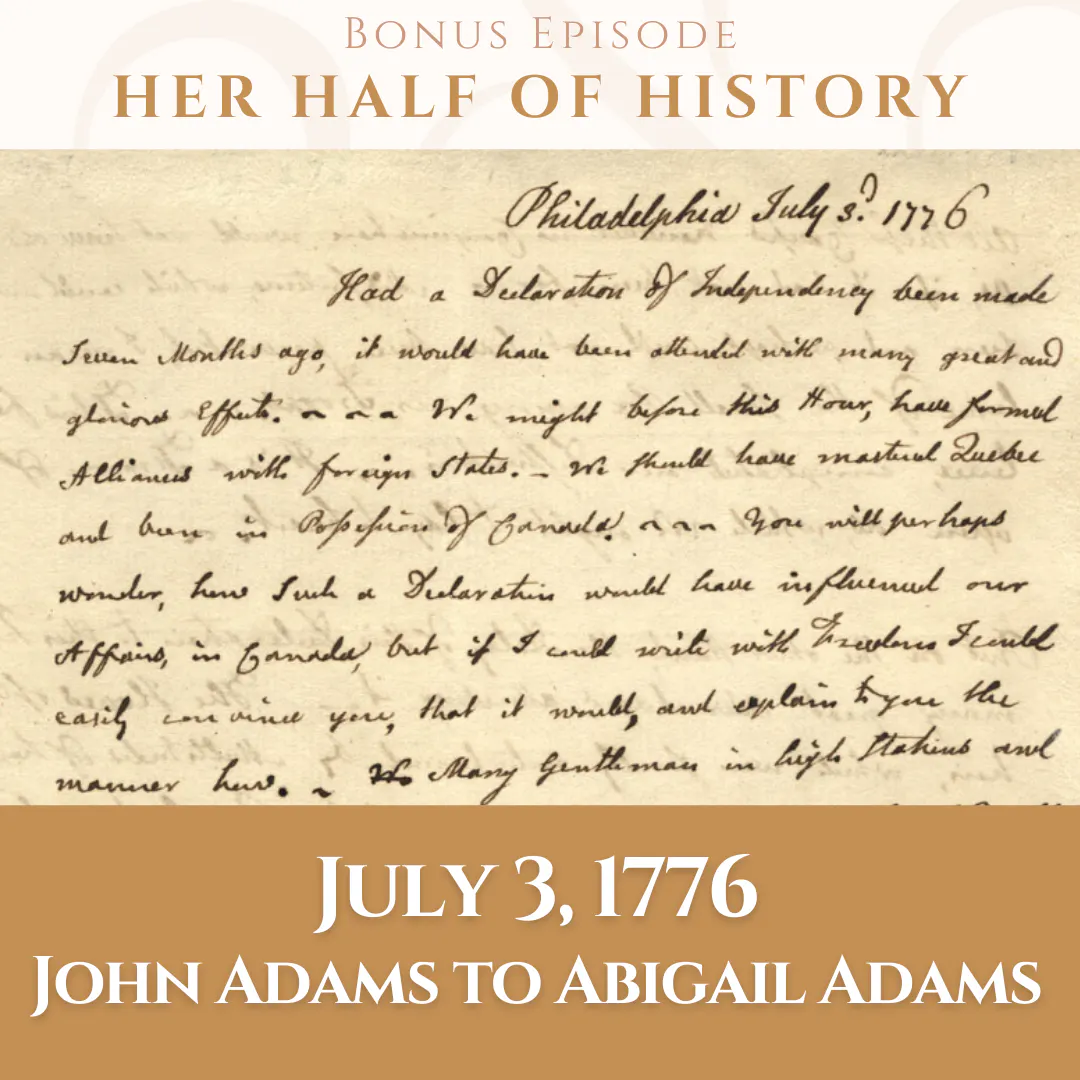 Bonus Episode
HER HALF OF HISTORY
Philadelphia July 3d. 1776
Had a Declaration of Independency been made
Seven Months ago, it would have been attended with many great and
glorious Effects. ~ ~ ~ We might before this Hour, have formed
Alliances with foreign States. – We should have mastered Quebec
and been in Possession of Canada. ~ ~ ~ You will perhaps
wonder, how Such a Declaration would have influenced our
Affairs, in Canada, but if I could write with Freedom I could
easily convince you, that it would, and explain to you the
manner how. ~ Many Gentlemen in high Stations and
July 3, 1776
John Adams to Abigail Adams